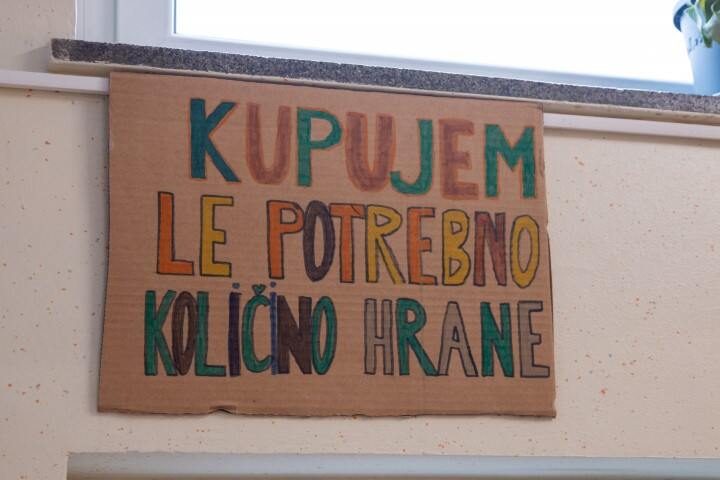 KUPUJEM
LE POTREBNO
KOLIČINO HRANE